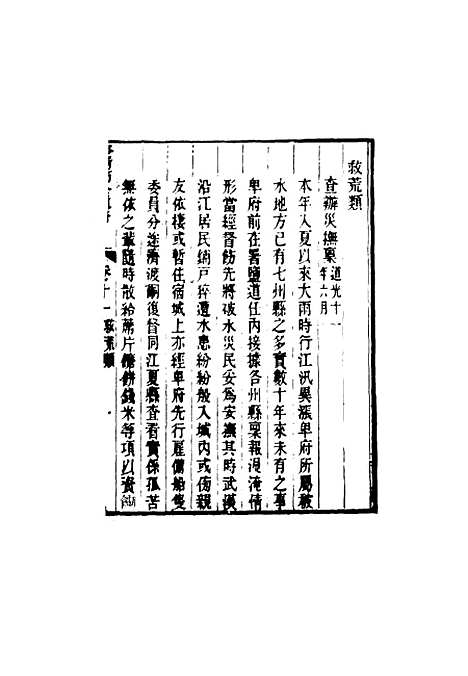 救荒類
查辦災撫稟道光十一年六月
本年入夏以來大雨時行江汎異漲卑府所屬被
水地方已有七州縣之多實數十年來未有之事
卑府前在署鹽道任內接據各州縣稟報淹情
形當經督飭先將破水災民妥為安撫其時武漢
沿江居民鋪戶猝遭水患紛紛般入城內或傍親
友依棲或暫住宿城上亦經卑府先行雇備船隻
委員分途濟渡嗣復督同江夏縣查看實係孤苦
無依之輩隨時散給蓆片饝餅錢米等項以資
卷十一 救荒類